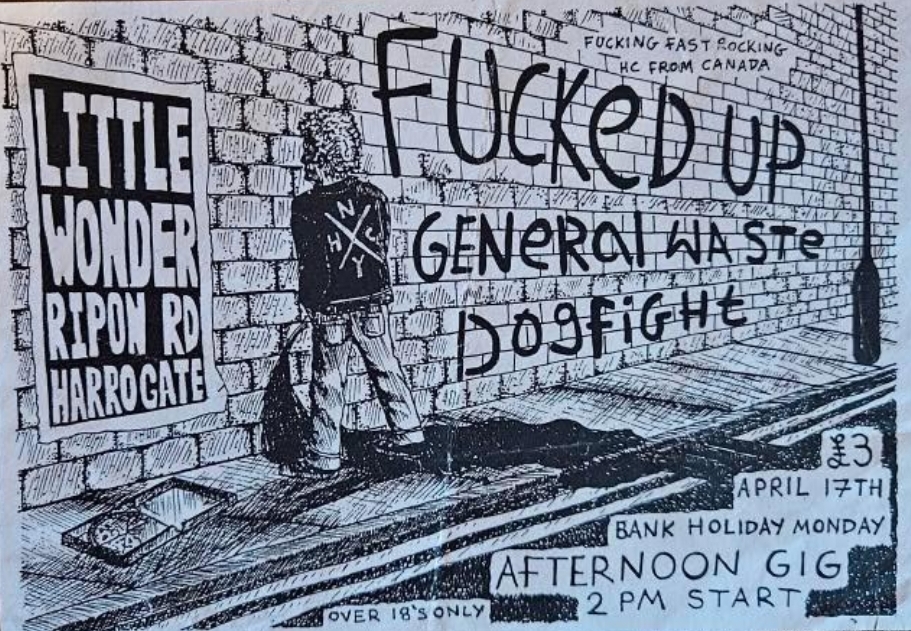 LITTLE
WONDER
RIPON RD
HARROGATE
N
H C
Y
FUCKING FAST ROCKING
HC FROM CANADA
FUCKED UP
GENeRal WASTe
DOgFiGHt
£3
APRIL 17TH
BANK HOLIDAY MONDAY
AFTERNOON GIG
2 PM START
OVER 18'S ONLY